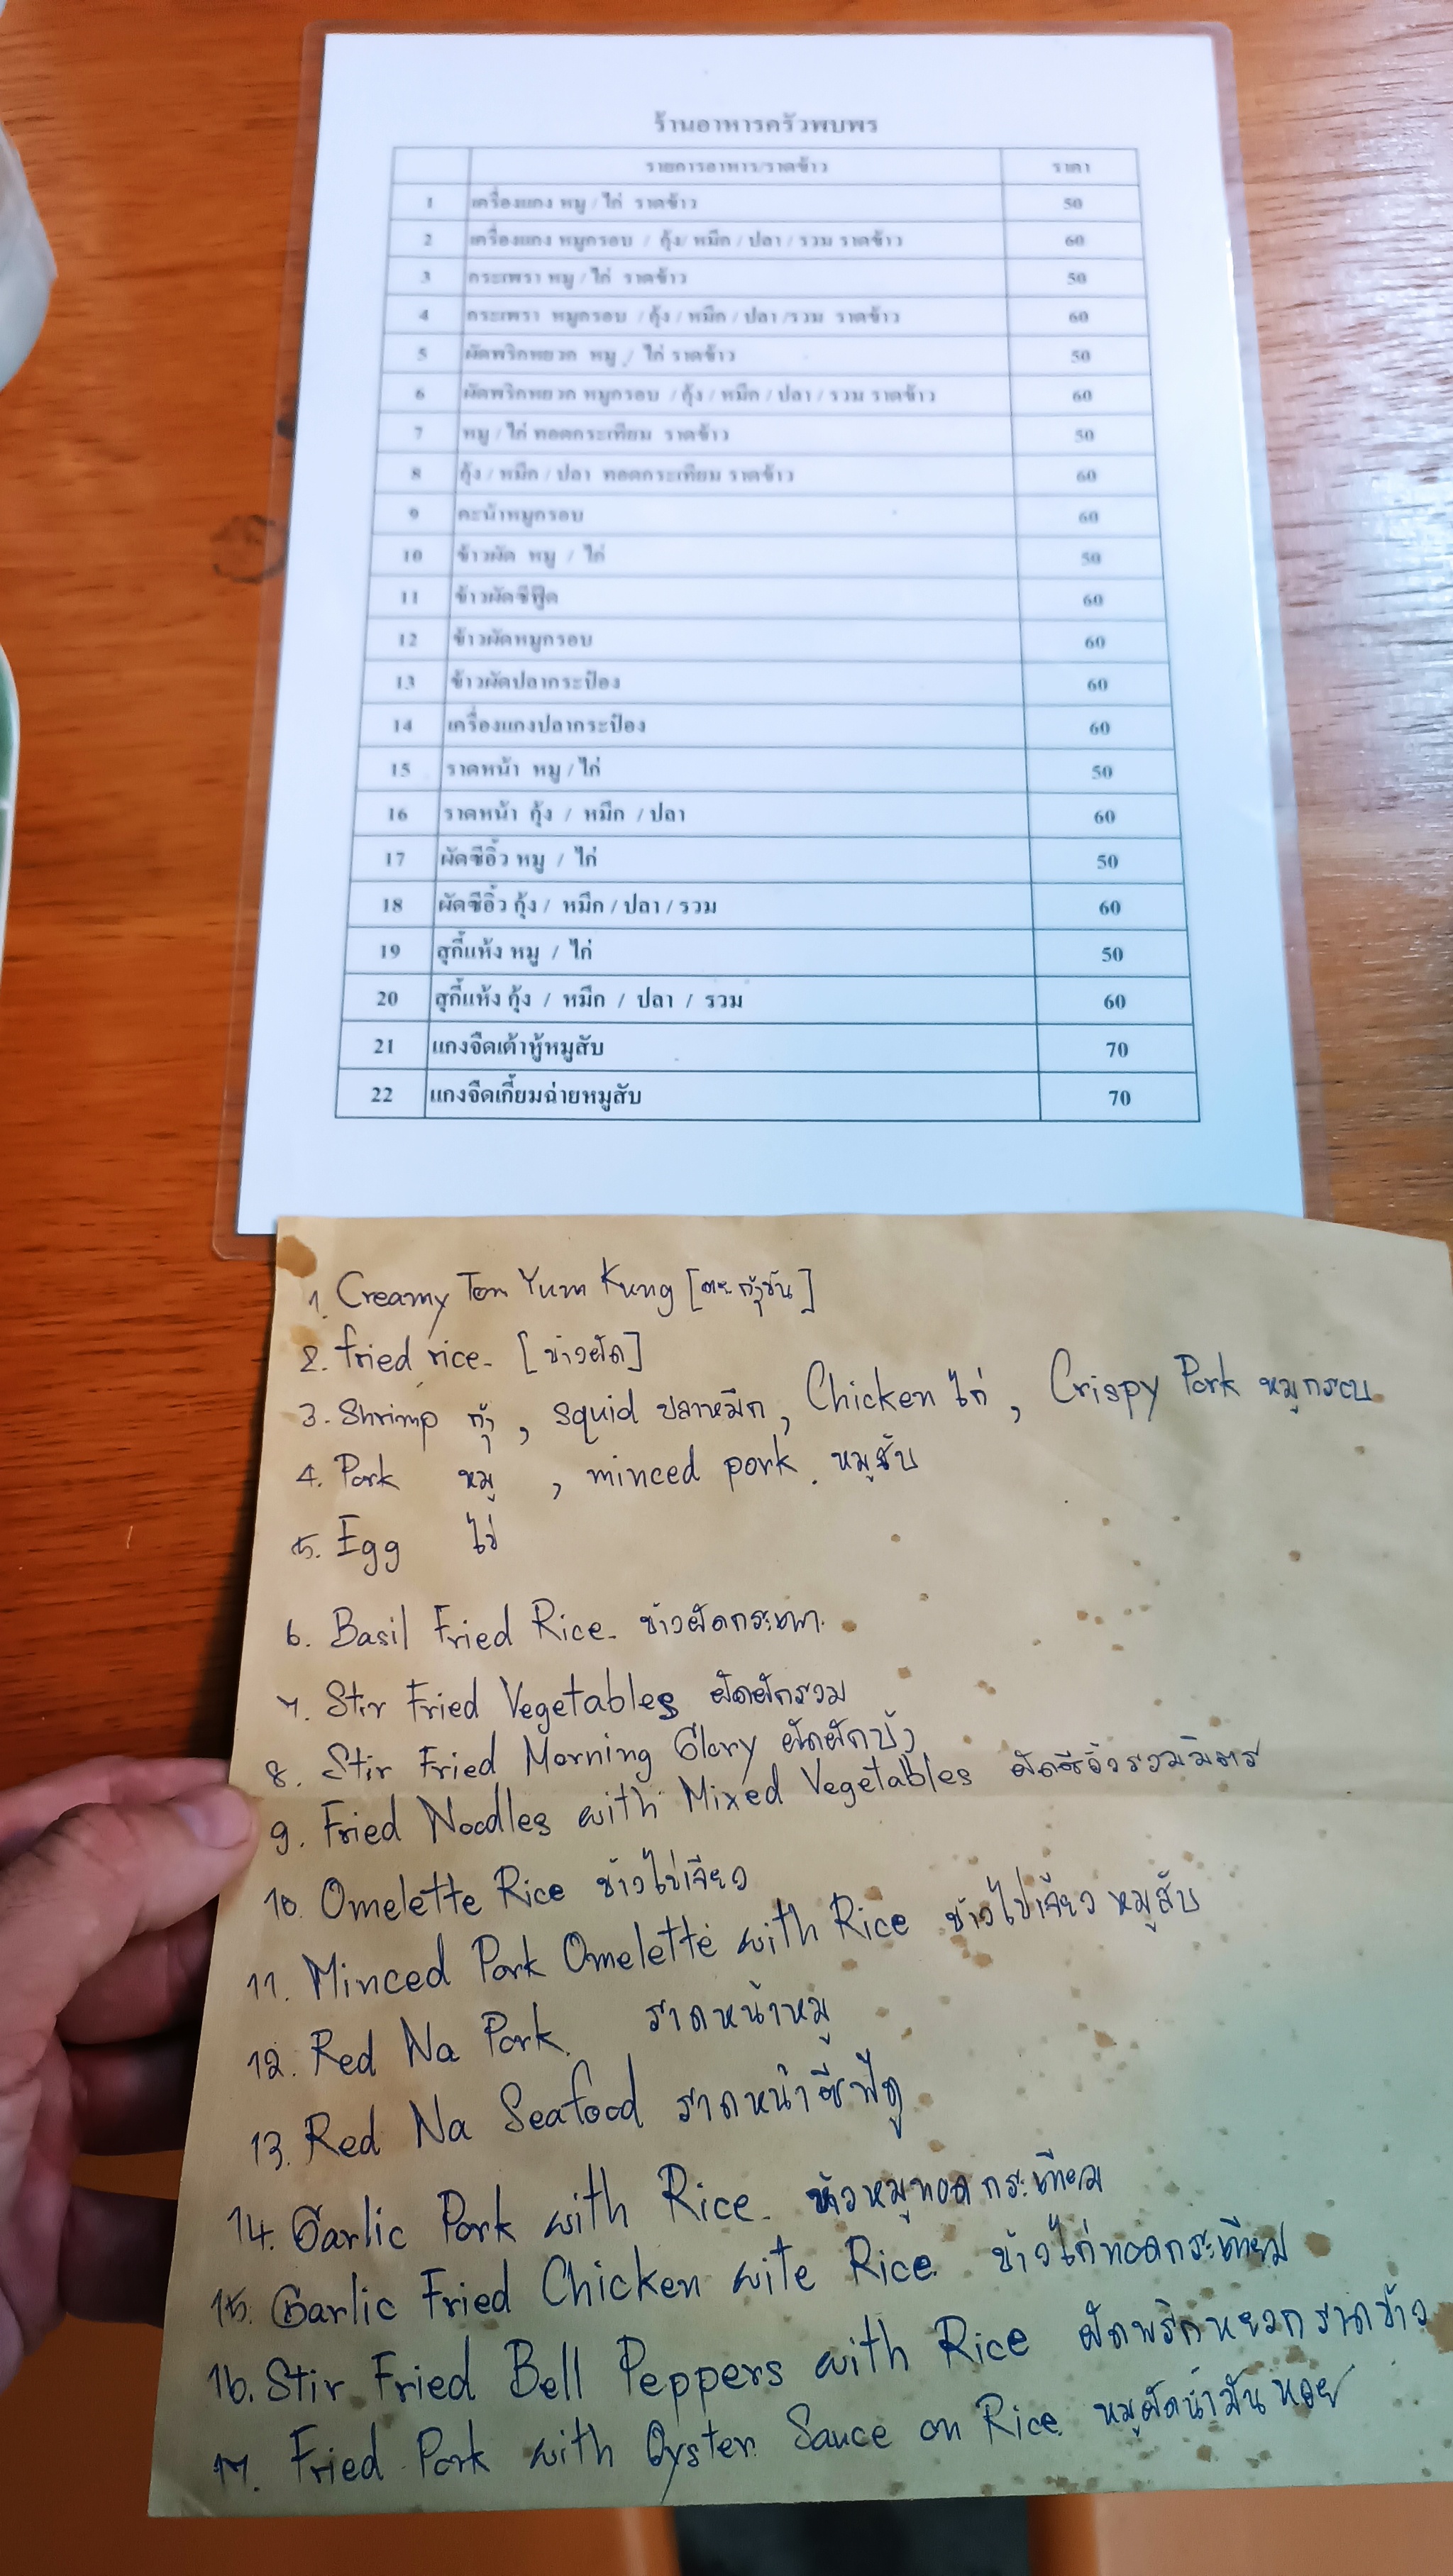 ร้านอาหารครัวพบพร
รายการอาหาร/ราดข้าว ราคา
1 เครื่องแกง หมู / ไก่ ราดข้าว 50
2 เครื่องแกง หมูกรอบ / กุ้ง/ หมึก / ปลา / รวม ราดข้าว 60
3 กระเพรา หมู / ไก่ ราดข้าว 50
4 กระเพรา หมูกรอบ / กุ้ง / หมึก / ปลา /รวม ราดข้าว 60
5 ผัดพริกหยวก หมู / ไก่ ราดข้าว 50
6 ผัดพริกหยวก หมูกรอบ / กุ้ง / หมึก / ปลา / รวม ราดข้าว 60
7 หมู / ไก่ ทอดกระเทียม ราดข้าว 50
8 กุ้ง / หมึก / ปลา ทอดกระเทียม ราดข้าว 60
9 คะน้าหมูกรอบ 60
10 ข้าวผัด หมู / ไก่ 50
11 ข้าวผัดซีฟู๊ด 60
12 ข้าวผัดหมูกรอบ 60
13 ข้าวผัดปลากระป๋อง 60
14 เครื่องแกงปลากระป๋อง 60
15 ราดหน้า หมู / ไก่ 50
16 ราดหน้า กุ้ง / หมึก / ปลา 60
17 ผัดซีอิ๊ว หมู / ไก่ 50
18 ผัดซีอิ๊ว กุ้ง / หมึก / ปลา / รวม 60
19 สุกี้แห้ง หมู / ไก่ 50
20 สุกี้แห้ง กุ้ง / หมึก / ปลา / รวม 60
21 แกงจืดเต้าหู้หมูสับ 70
22 แกงจืดเกี้ยมฉ่ายหมูสับ 70
1. Creamy Tom Yum Kung
2. fried rice. [ข้าวผัด]
3. Shrimp กุ้ง , squid ปลาหมึก , Chicken ไก่ , Crispy Pork หมูกรอบ
4. Pork หมู , minced pork. หมูสับ
5. Egg ไข่
6. Basil Fried Rice. ข้าวผัดกระเพา.
7. Stir Fried Vegetables ผัดผักรวม
8. Stir Fried Morning Glory ผัดผักบุ้ง
9. Fried Noodles with Mixed Vegetables ผัดซีอิ้วรวมมิตร
10. Omelette Rice ข้าวไข่เจียว
11. Minced Pork Omelette with Rice ข้าวไข่เจียวหมูสับ
12. Red Na Pork. ราดหน้าหมู
13. Red Na Seafood ราดหน้าซีฟู๊ด
14. Garlic Pork with Rice. ข้าวหมูทอดกระเทียม
15. Garlic Fried Chicken wite Rice. ข้าวไก่ทอดกระเทียม
16. Stir Fried Bell Peppers with Rice ผัดพริกหยวกราดข้าว
17. Fried Pork with Oyster Sauce on Rice. หมูผัดน้ำมันหอย